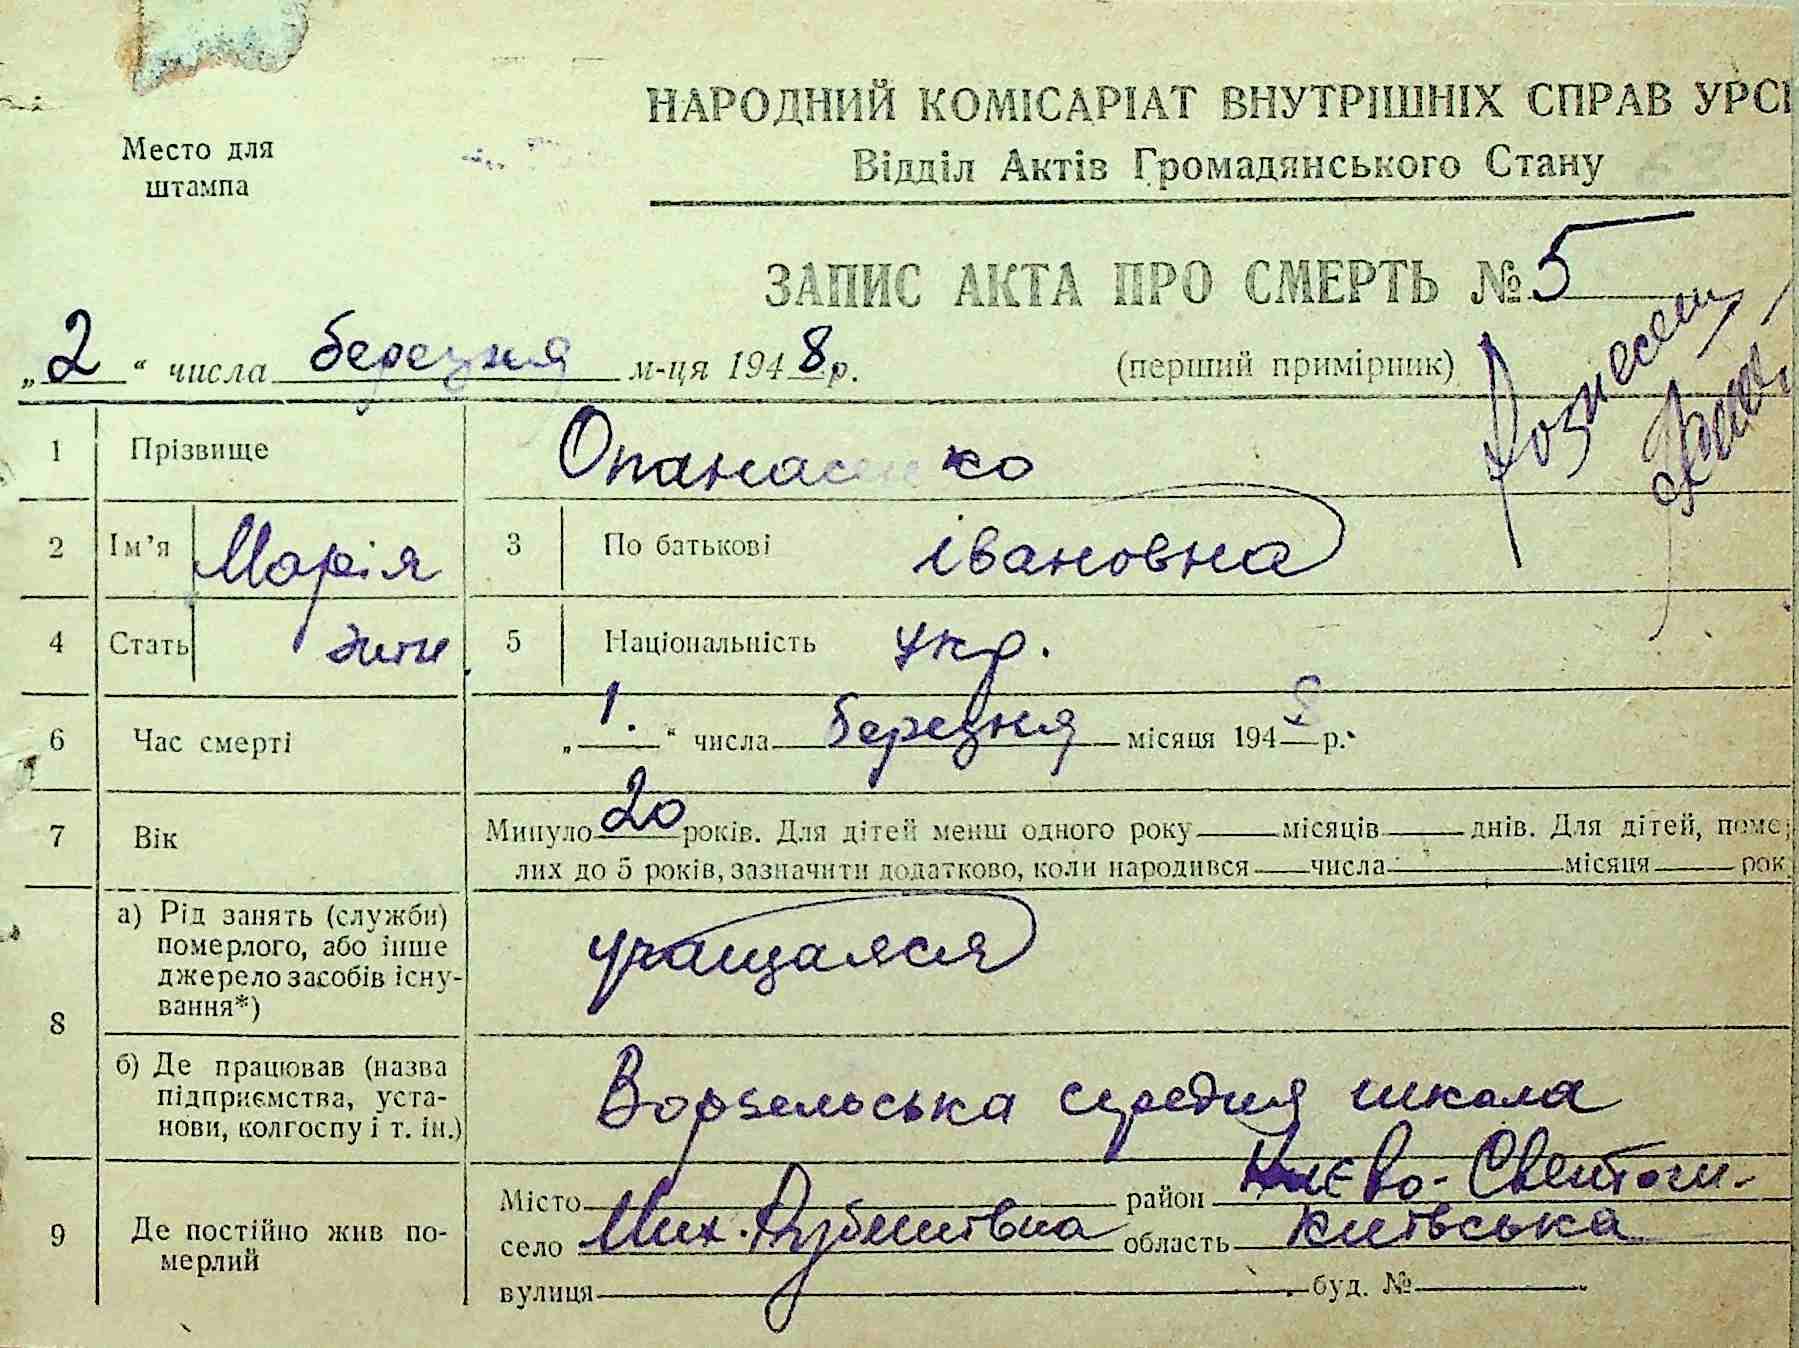 НАРОДНИЙ КОМІСАРІАТ ВНУТРІШНІХ СПРАВ УРСР
Відділ Актів Громадянського Стану
Место для
штампа
ЗАПИС АКТА ПРО СМЕРТЬ № 5
„2“ числа березня м-ця 1948 р. (перший примірник)
1 Прізвище Опанасенко
2 Ім'я Марія 3 По батькові івановна
4 Стать 5 Національність укр.
6 Час смерті „1.“ числа березня місяця 1948 р.
7 Вік Минуло 20 років. Для дітей менш одного року місяців днів. Для дітей, поме
лих до 5 років, зазначити додатково, коли народився числа місяця рок
8 а) Рід занять (служби) померлого, або інше джерело засобів існування*) учащаяся
б) Де працював (назва підприємства, установи, колгоспу і т. ін.) Ворзельська середня школа
9 Де постійно жив померлий
Місто район Києво-Святоши-
село Мих. Рубежівна область київська
вулиця буд. №